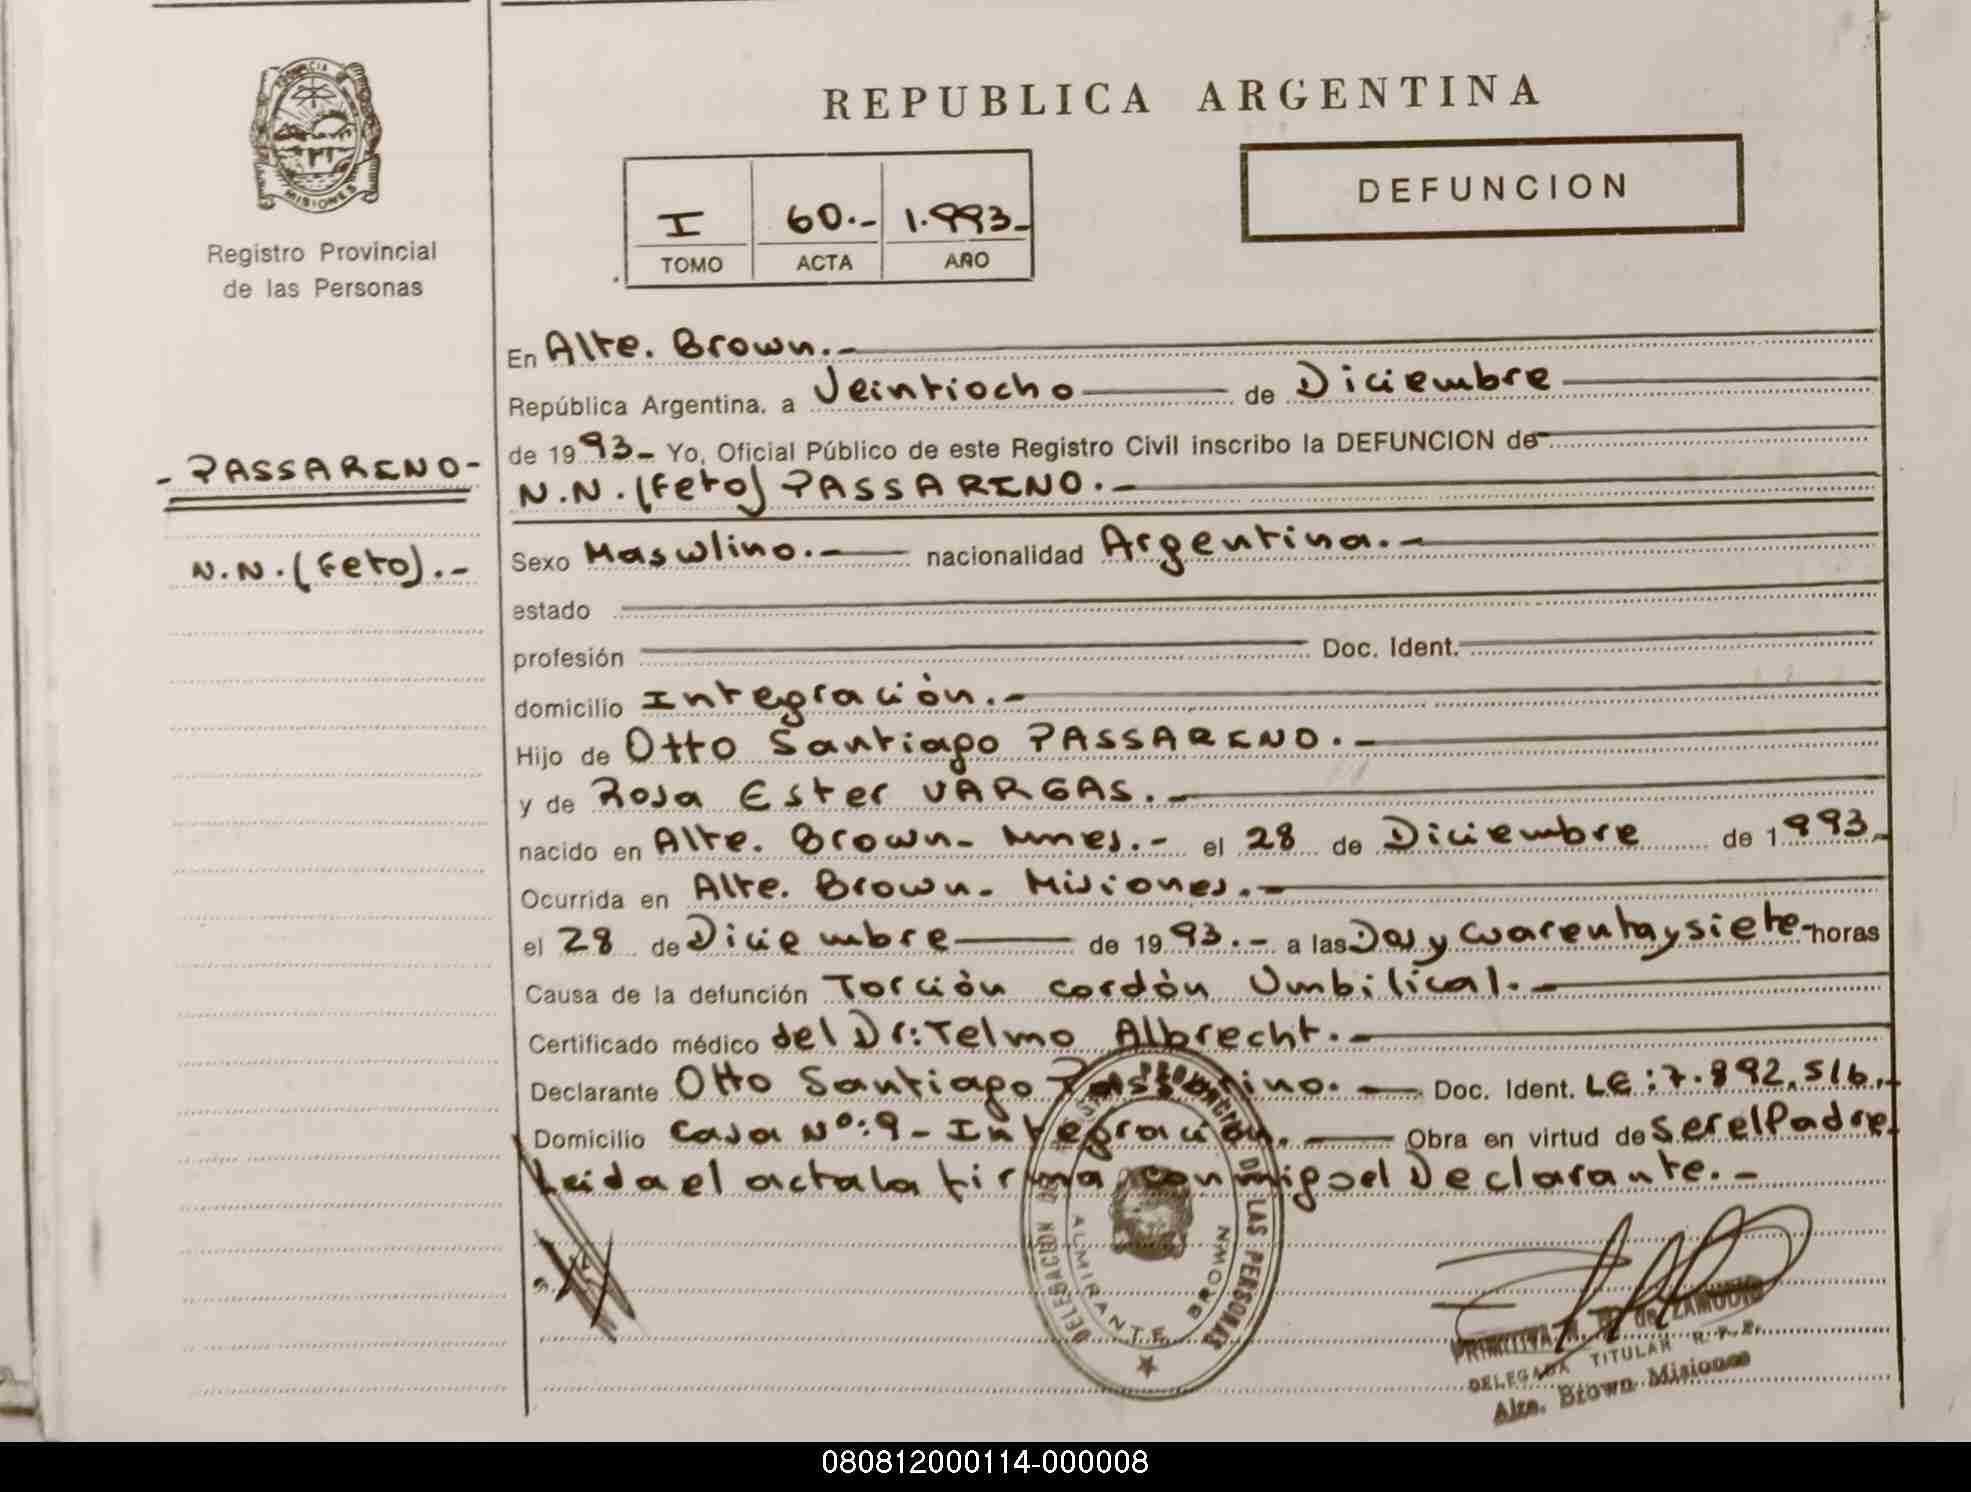 PROVINCIA DE
MISIONES
Registro Provincial
de las Personas
REPUBLICA ARGENTINA
DEFUNCION
I 60.- 1.993-
TOMO ACTA AÑO
En Alte. Brown.-
República Argentina, a Veintiocho de Diciembre
de 1993- Yo, Oficial Público de este Registro Civil inscribo la DEFUNCION de
- PASSARINO-
N.N. (Feto) PASSARINO.-
N.N. (Feto).-
Sexo Masculino.- nacionalidad Argentina.-
estado
profesión Doc. Ident.
domicilio Integración.-
Hijo de Otto Santiago PASSARINO.-
y de Rosa Ester VARGAS.-
nacido en Alte. Brown- Mnes.- el 28 de Diciembre de 1993.-
Ocurrida en Alte. Brown- Misiones.-
el 28 de Diciembre de 1993.- a las Dos y Cuarenta y siete- horas
Causa de la defunción Torción cordón Umbilical.-
Certificado médico del Dr: Telmo Albrecht.-
Declarante Otto Santiago Passarino.- Doc. Ident. LE: 7.892.516.-
Domicilio Casa Nº: 9 - Integración.- Obra en virtud de ser el Padre.
Leida el acta la firma conmigo el Declarante.-
DELEGACION DEL REGISTRO PROVINCIAL DE LAS PERSONAS
ALMIRANTE BROWN
PRIMITIVA de ZAMUDIO
DELEGADA TITULAR R.P.P.
Alte. Brown Misiones
080812000114-000008